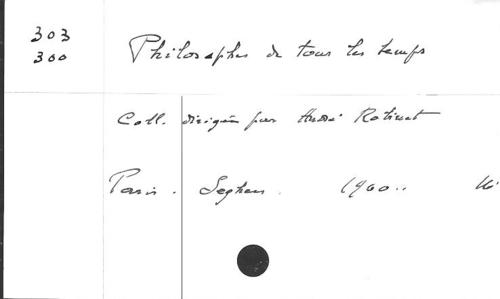 303
300
Philosophes de tous les temps
Coll. dirigée par André Robinet
Paris. Seghers. 1960..